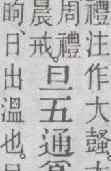 禮注作大鼜
周禮
晨戒。旦五通
昫、日出溫也。